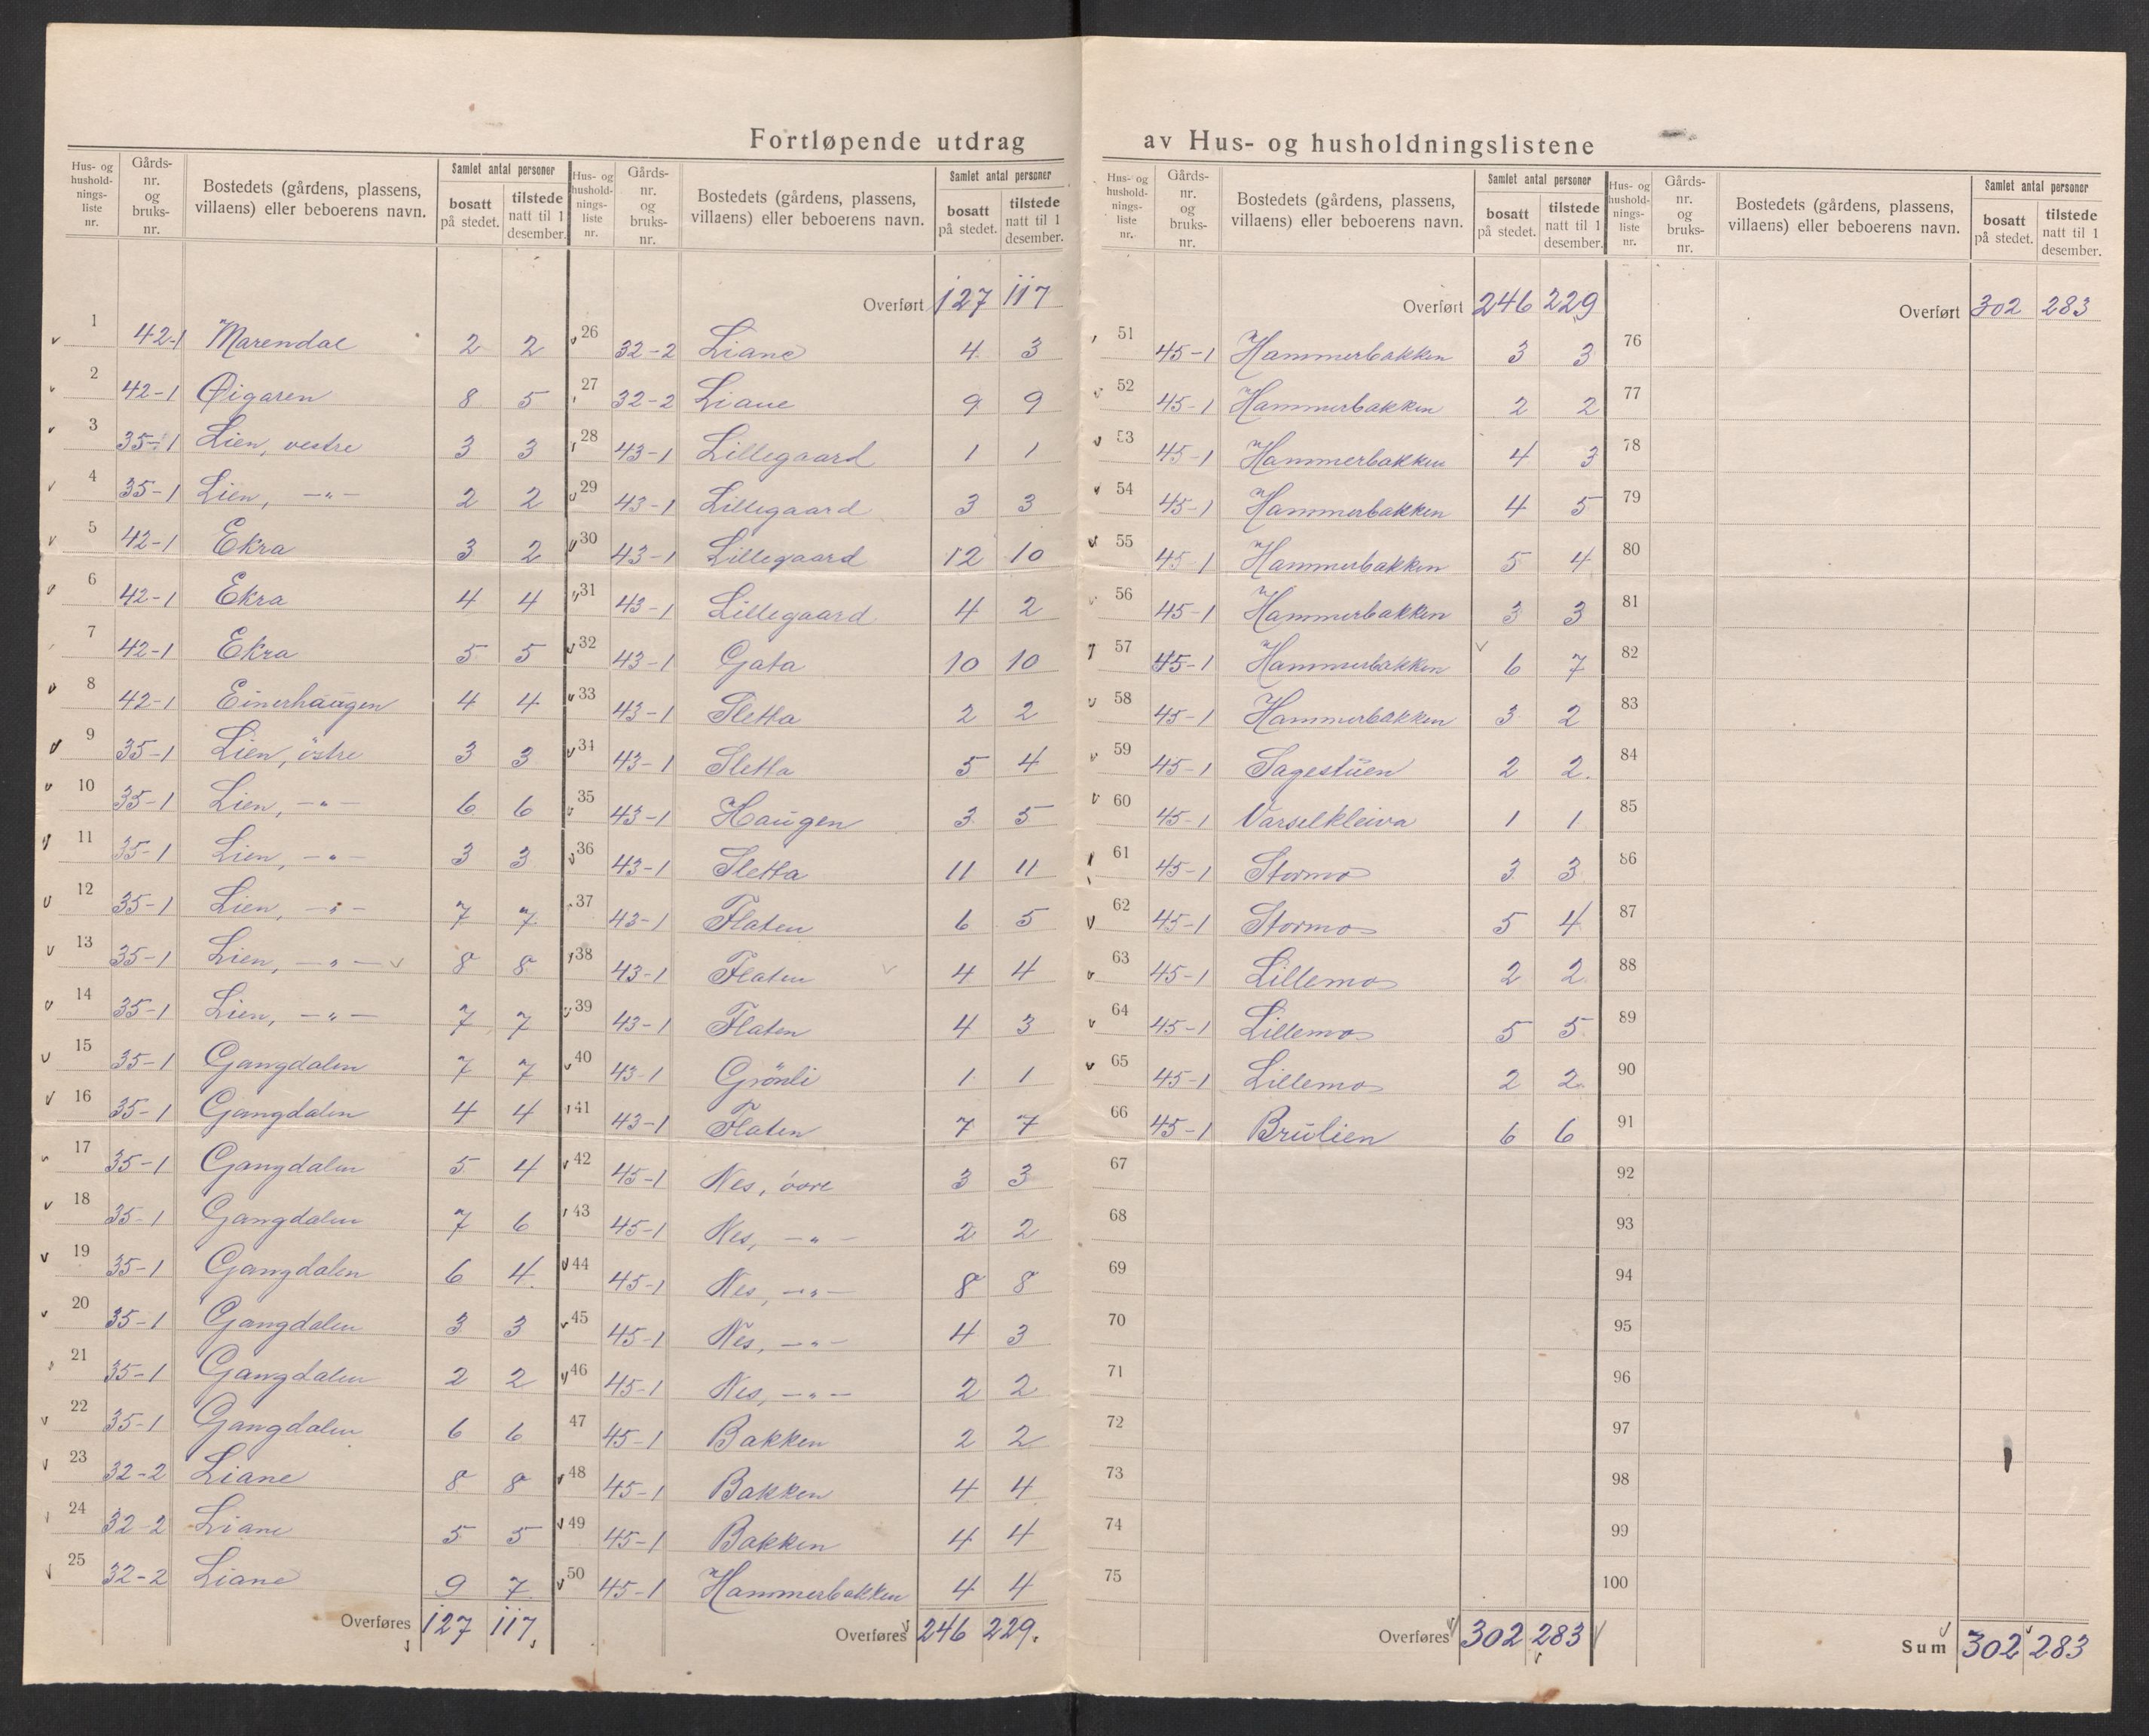 Fortløpende utdrag av Hus- og husholdningslistene
Hus- og husholdnings-liste nr. | Gårds-nr. og bruks-nr. | Bostedets (gårdens, plassens, villaens) eller beboerens navn. | Samlet antal personer | bosatt på stedet. | tilstede natt til 1 desember.
1 42-1 Marendal 2 2
2 42-1 Øigaren 8 5
3 35-1 Lien, vestre 3 3
4 35-1 Lien, —„— 2 2
5 42-1 Ekra 3 2
6 42-1 Ekra 4 4
7 42-1 Ekra 5 5
8 42-1 Einerhaugen 4 4
9 35-1 Lien, östre 3 3
10 35-1 Lien, —„— 6 6
11 35-1 Lien, —„— 3 3
12 35-1 Lien, —„— 7 7
13 35-1 Lien, —„— 8 8
14 35-1 Lien, —„— 7 7
15 35-1 Gangdalen 7 7
16 35-1 Gangdalen 4 4
17 35-1 Gangdalen 5 4
18 35-1 Gangdalen 7 6
19 35-1 Gangdalen 6 4
20 35-1 Gangdalen 3 3
21 35-1 Gangdalen 2 2
22 35-1 Gangdalen 6 6
23 32-2 Liane 8 8
24 32-2 Liane 5 5
25 32-2 Liane 9 7
Overføres 127 117
Hus- og husholdnings-liste nr. | Gårds-nr. og bruks-nr. | Bostedets (gårdens, plassens, villaens) eller beboerens navn. | Samlet antal personer | bosatt på stedet. | tilstede natt til 1 desember.
Overført 127 117
26 32-2 Liane 4 3
27 32-2 Liane 9 9
28 43-1 Lillegaard 1 1
29 43-1 Lillegaard 3 3
30 43-1 Lillegaard 12 10
31 43-1 Lillegaard 4 2
32 43-1 Gata 10 10
33 43-1 Sletta 2 2
34 43-1 Sletta 5 4
35 43-1 Haugen 3 5
36 43-1 Sletta 11 11
37 43-1 Flaten 6 5
38 43-1 Flaten 4 4
39 43-1 Flaten 4 3
40 43-1 Grönli 1 1
41 43-1 Flaten 7 7
42 45-1 Nes, övre 3 3
43 45-1 Nes, —„— 2 2
44 45-1 Nes, —„— 8 8
45 45-1 Nes, —„— 4 3
46 45-1 Nes, —„— 2 2
47 45-1 Bakken 2 2
48 45-1 Bakken 4 4
49 45-1 Bakken 4 4
50 45-1 Hammerbakken 4 4
Overføres 246 229.
Hus- og husholdnings-liste nr. | Gårds-nr. og bruks-nr. | Bostedets (gårdens, plassens, villaens) eller beboerens navn. | Samlet antal personer | bosatt på stedet. | tilstede natt til 1 desember.
Overført 246 229
51 45-1 Hammerbakken 3 3
52 45-1 Hammerbakken 2 2
53 45-1 Hammerbakken 4 3
54 45-1 Hammerbakken 4 5
55 45-1 Hammerbakken 5 4
56 45-1 Hammerbakken 3 3
57 45-1 Hammerbakken 6 7
58 45-1 Hammerbakken 3 2
59 45-1 Sagestuen 2 2.
60 45-1 Varselkleiva 1 1
61 45-1 Stormo 3 3
62 45-1 Stormo 5 4
63 45-1 Lillemo 2 2
64 45-1 Lillemo 5 5
65 45-1 Lillemo 2 2
66 45-1 Brulien 6 6
67
68
69
70
71
72
73
74
75
Overføres 302 283
Hus- og husholdnings-liste nr. | Gårds-nr. og bruks-nr. | Bostedets (gårdens, plassens, villaens) eller beboerens navn. | Samlet antal personer | bosatt på stedet. | tilstede natt til 1 desember.
Overført 302 283
76
77
78
79
80
81
82
83
84
85
86
87
88
89
90
91
92
93
94
95
96
97
98
99
100
Sum 302 283